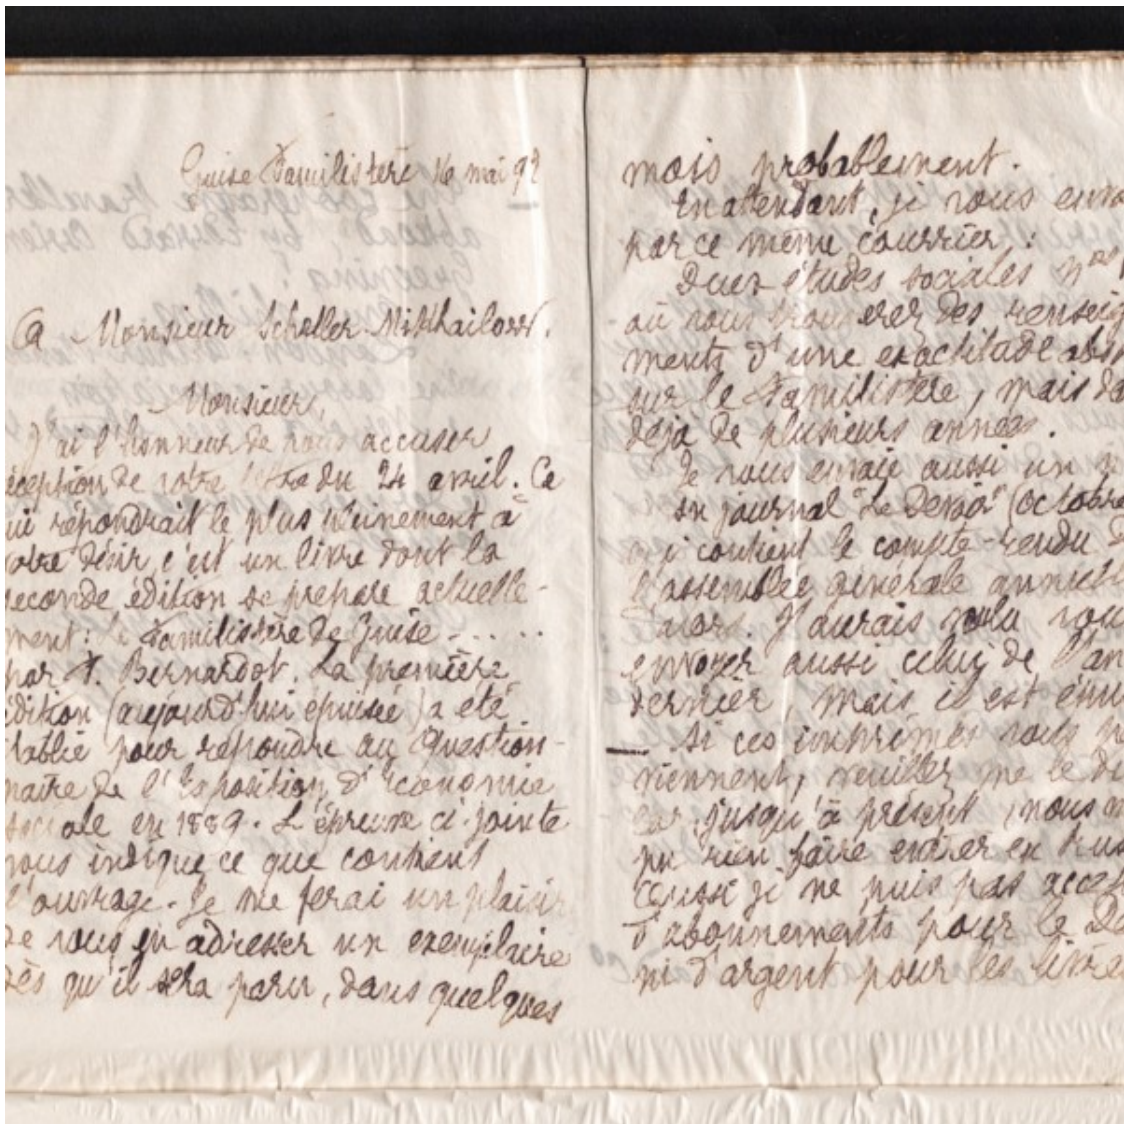 Guise Familistère 16 mai 92
A Monsieur Scheller-Mikhaïloff.
Monsieur,
J'ai l'honneur de vous accuser
éception de votre lettre du 24 avril. Ce
ui répondrait le plus pleinement à
otre désir, c'est un livre dont la
seconde édition se prépare actuelle-
ment: Le Familistère de Guise .....
par F. Bernardot. La première
édition (aujourd'hui épuisée) a été
établie pour répondre au Question-
naire de l'Exposition d'Economie
sociale en 1889. L'épreuve ci-jointe
vous indique ce que contient
l'ouvrage. Je me ferai un plaisir
de vous en adresser un exemplaire
dès qu'il sera paru, dans quelques
mois probablement.
En attendant, je vous envo
par ce même courrier :
Deux études sociales Nos
où vous trouverez des renseig
ments d'une exactitude abs
sur le Familistère, mais da
déjà de plusieurs années.
Je vous envoie aussi un
du journal "Le Devoir" (octobre
qui contient le compte-rendu d
l'assemblée générale annuel
J'aurais voulu vou
envoyer aussi celui de l'an
dernier, mais il est épui
Si ces imprimés vous pa
viennent, veuillez me le di
car jusqu'à présent, nous n
pu rien faire entrer en Rus
aussi je ne puis pas accep
d'abonnements pour le De
ni d'argent pour les livre